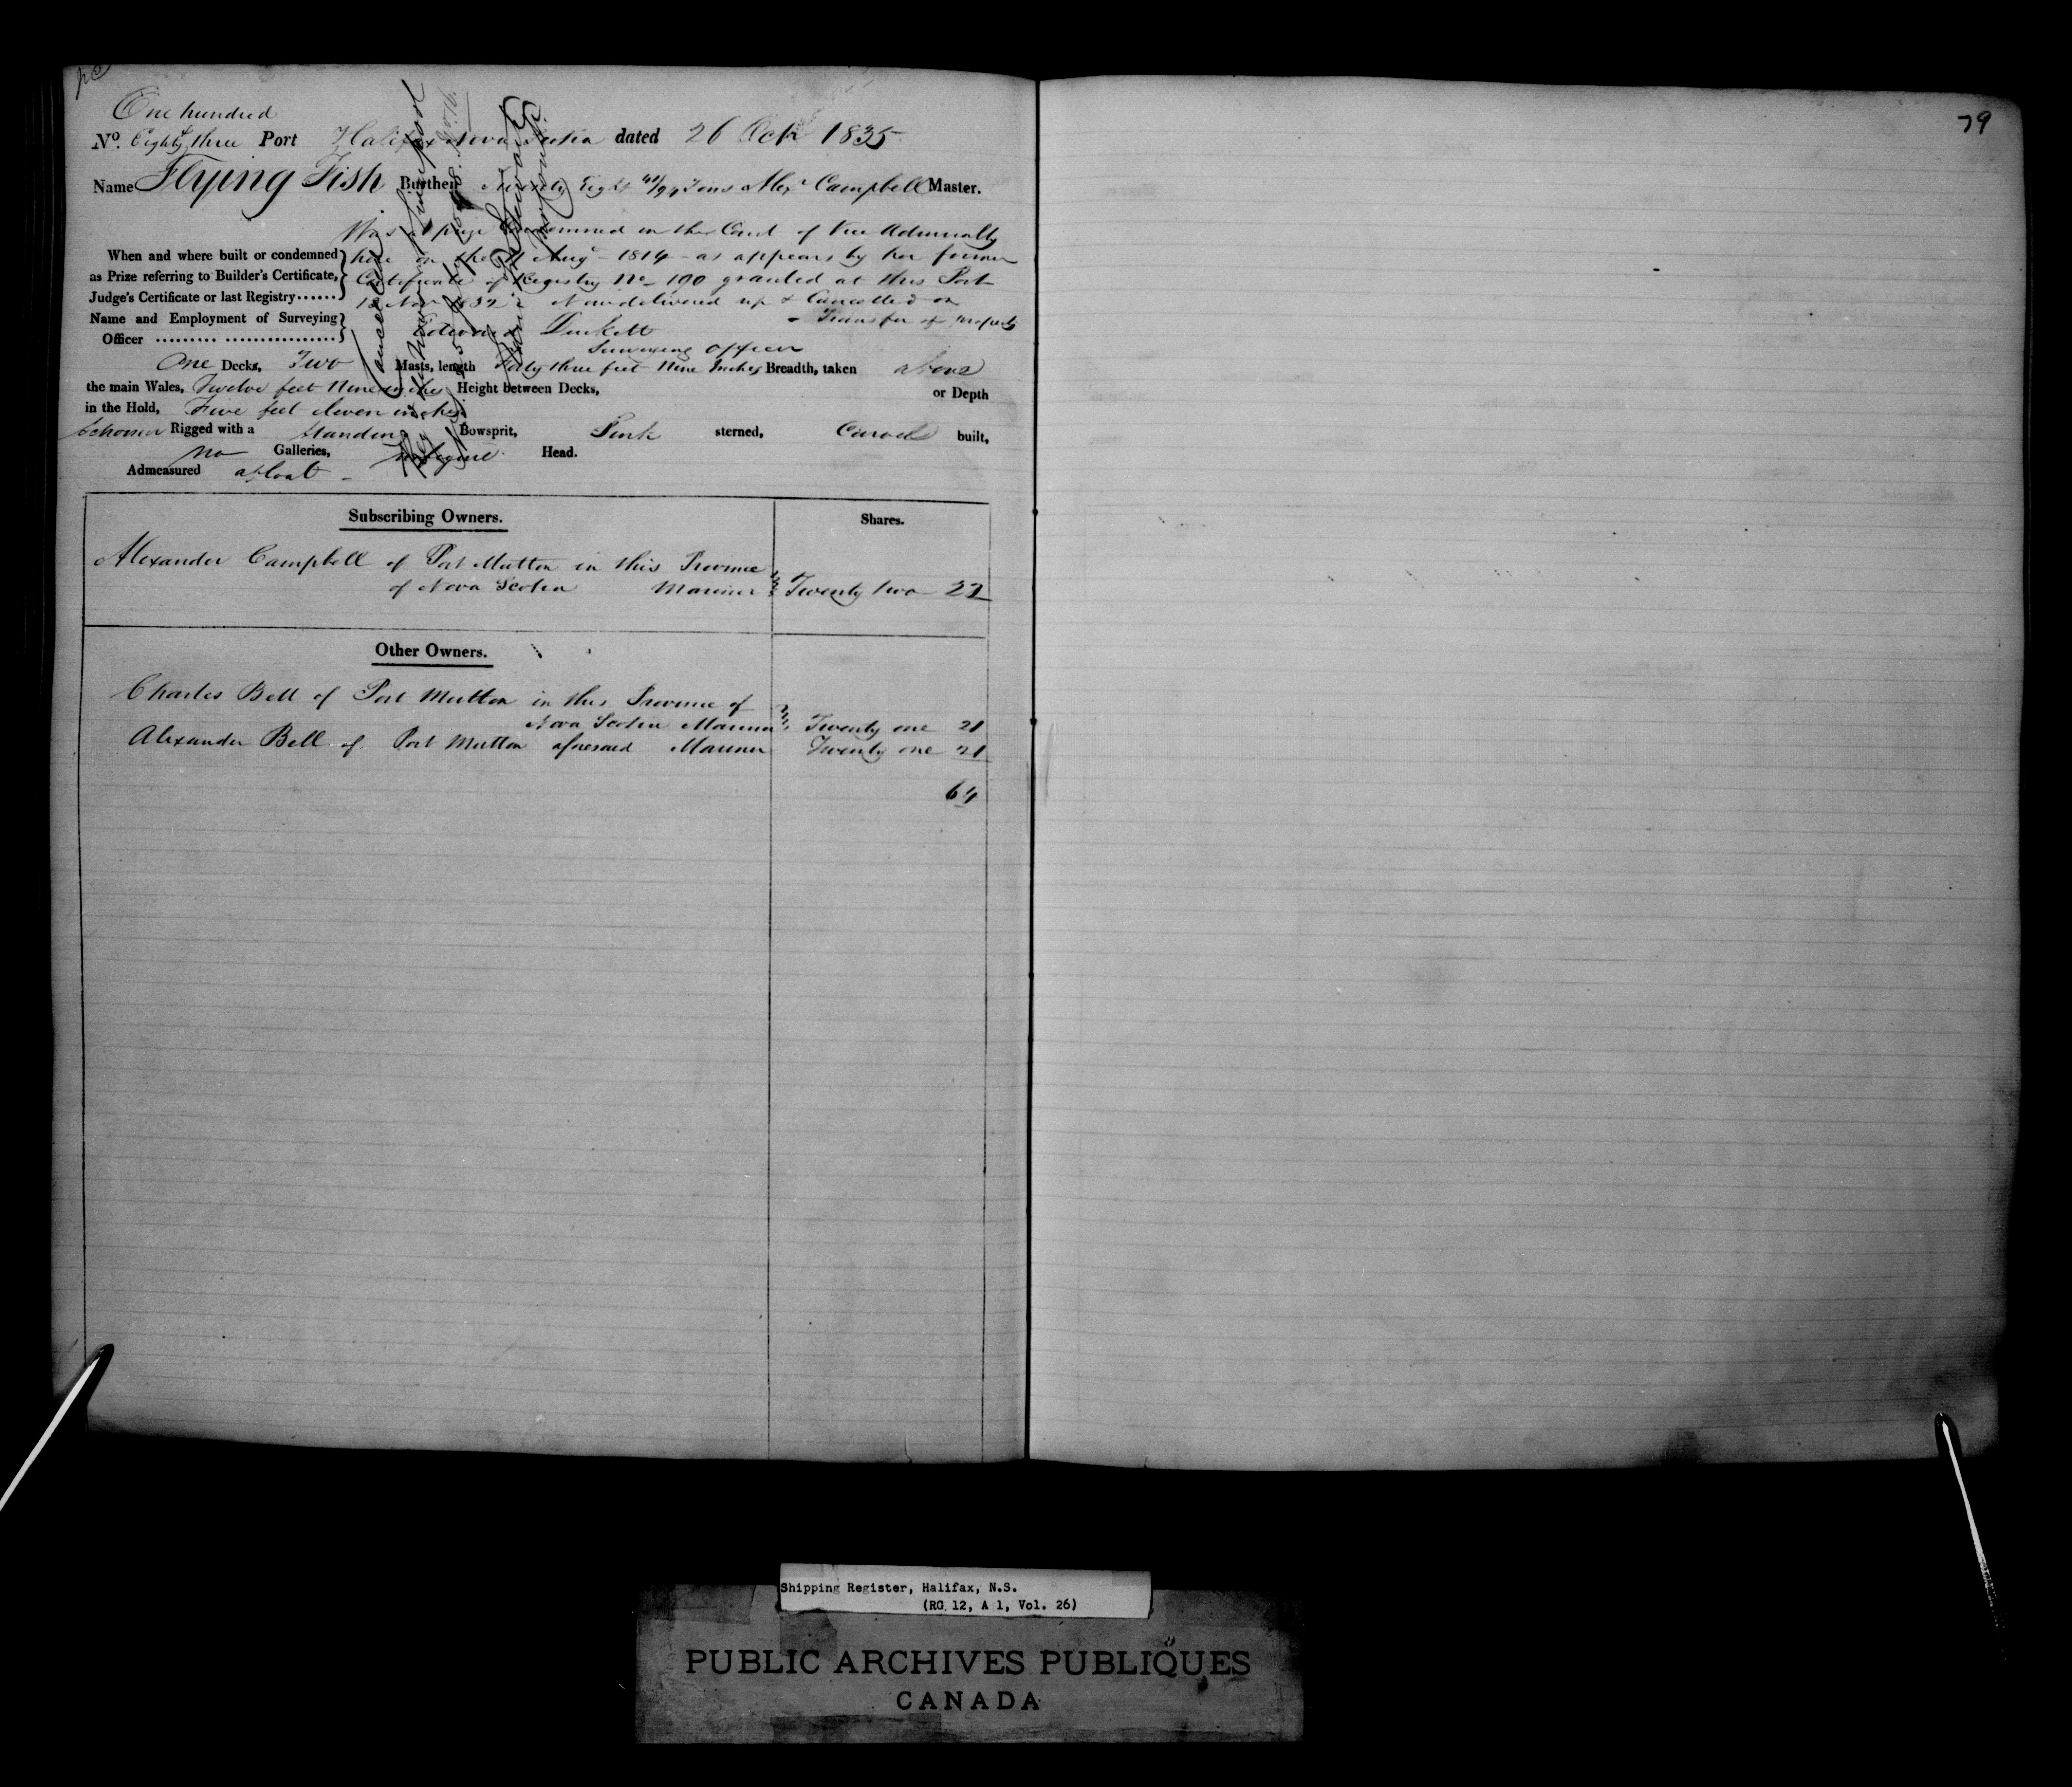 One hundred
No. Eighty three Port Halifax Nova Scotia dated 26 Oct 1835
79
Name Flying Fish Burthen Eight 41/94 Tons Alexr Campbell Master.
Was a prize condemned in the Court of Vice Admiralty
When and where built or condemned here on the Augt 1814 as appears by her former
as Prize referring to Builder's Certificate, Certificate of Registry No 190 granted at this Port
Judge's Certificate or last Registry...... Nov 1832 Now delivered up & Cancelled on
Transfer of property
Name and Employment of Surveying
Officer ......... ................ Edward Duckett
Surveying Officer
One Decks, Two Masts, length Forty three feet Nine Inches Breadth, taken above
the main Wales, Twelve feet Nine inches Height between Decks, or Depth
in the Hold, Five feet Seven inches
Schooner Rigged with a Standing Bowsprit, Pink sterned, Carvel built,
no Galleries, Head.
Admeasured afloat
Cancelled
Subscribing Owners. Shares.
Alexander Campbell of Port Mutton in this Province
of Nova Scotia Mariner Twenty two 22
Other Owners.
Charles Bell of Port Mutton in this Province of
Nova Scotia Mariner Twenty one 21
Alexander Bell of Port Mutton aforesaid Mariner Twenty one 21
64
Shipping Register, Halifax, N.S.
(RG 12, A 1, Vol. 26)
PUBLIC ARCHIVES PUBLIQUES
CANADA